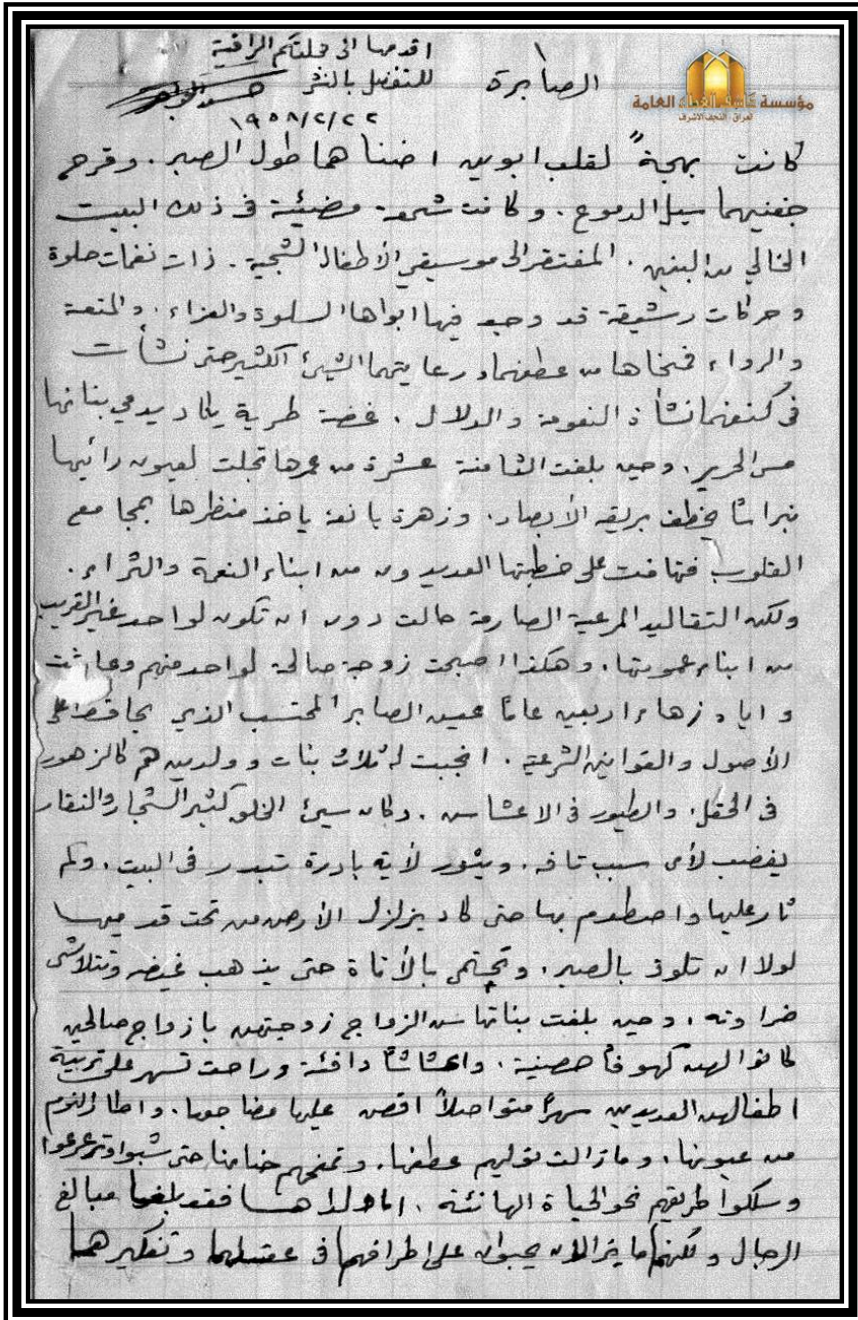 ١
اقدمها الى مجلتكم الراقية
للتفضل بالنشر
الصابرة
١٩٥٨/٢/٢٢
مؤسسة كاشف الغطاء العامة
العراق - النجف الاشرف
كانت بهجةً لقلب ابوين اضناهما طول الصبر. وقرح
جفنيهما سيل الدموع. وكانت شمعة مضيئة في ذلك البيت
الخالي من البنين. المفتقر الى موسيقى الأطفال الشجية. ذات نغمات حلوة
وحركات رشيقة قد وجد فيها ابواها السلوة والعزاء. والمتعة
والرواء فمنحاها من عطفهما ورعايتهما الشيئ الكثير حتى نشأت
في كنفهما نشأة النعومة والدلال. غضة طرية يكاد يدمي بنانها
مس الحرير. وحين بلغت الثامنة عشرة من عمرها تجلت لعيون رائيها
نبراسًا يخطف بريقه الأبصار. وزهرة يانعة ياخذ منظرها بمجامع
القلوب فتهافت على خطبتها العديدون من ابناء النعمة والثراء.
ولكن التقاليد المرعية الصارمة حالت دون ان تكون لواحد غير القريب
من ابناء عمومتها. وهكذا اصبحت زوجة صالحة لواحد منهم وعاشت
واياه زهاء اربعين عامًا عيش الصابر المحتسب الذي يحافظ على
الأصول والقوانين الشرعية. انجبت له ثلاث بنات وولدين هم كالزهور
في الحقل. والطيور في الاعشاش. وكان سيئ الخلق كثير الشجار والنقار
يغضب لأي سبب تافه. ويثور لأية بادرة تبدر في البيت. وكم
ثار عليها واصطدم بها حتى كاد يزلزل الأرض من تحت قدميها
لولا ان تلوذ بالصبر. وتحتمي بالأناة حتى يذهب غيضه وتتلاشى
ضراوته. وحين بلغت بناتها سن الزواج زوجتهن بازواج صالحين
كانوا لهن كهوفًا حصينة. واعشاشًا دافئة وراحت تسهر على تربية
اطفالهن العديدين سهرًا متواصلاً اقض عليها مضاجعها. واطار النوم
من عيونها. وما زالت توليهم عطفها. وتمنحهم حنانها حتى شبوا وترعرعوا
وسلكوا طريقهم نحو الحياة الهانئة. اما ولداها فقد بلغا مبالغ
الرجال ولكنهما ما يزالان يحبوان على اطرافهما في عقليهما وتفكيرهما